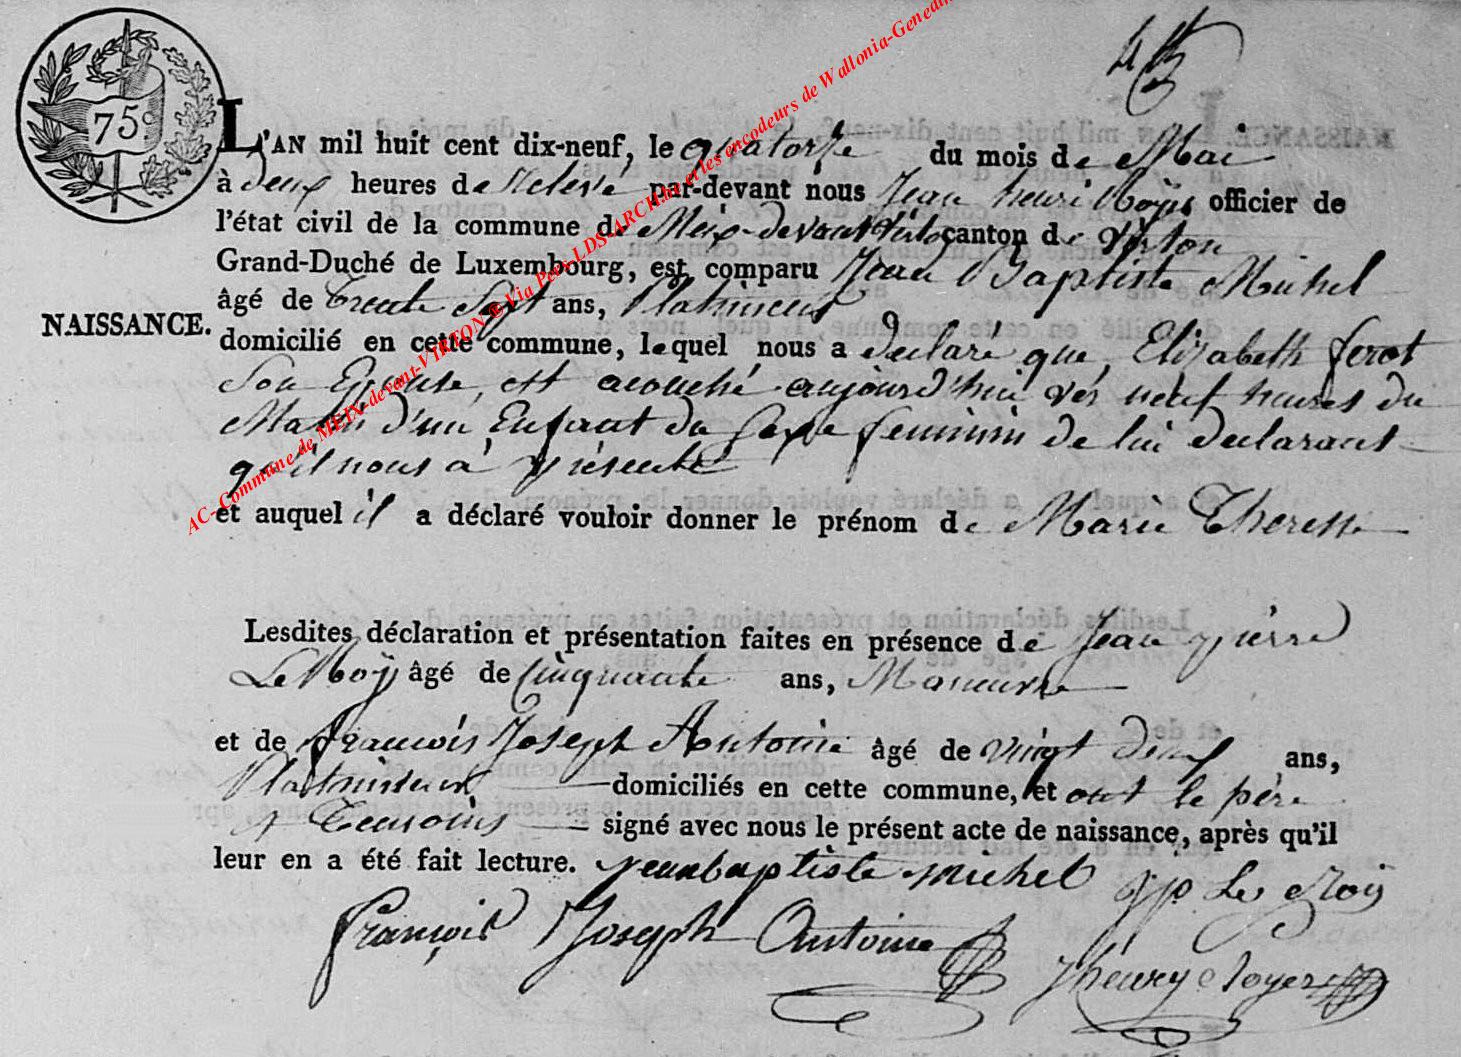 75c.
L'AN mil huit cent dix-neuf, le quatorze du mois de Mai
à deux heures de relevé par-devant nous Jean henri Noyer officier de
l'état civil de la commune de Meix-devant Virton canton de Virton
Grand-Duché de Luxembourg, est comparu Jean Baptiste Michel
âgé de trente Sept ans, Platineur
NAISSANCE.
domicilié en cette commune, lequel nous a declaré que, Elizabeth ferot
Son Epouse, est acouché aujourd'hui ver neuf heures du
Matin d'un Enfant du Sexe feminin de lui declarant
qu'il nous à présenté
et auquel il a déclaré vouloir donner le prénom de Marie Theresse
Lesdites déclaration et présentation faites en présence de Jean pierre
Le Roÿ âgé de Cinquante ans, Maneuvre
et de francois Joseph Antoine âgé de vingt deux ans,
Platineur domiciliés en cette commune, et ont le père
et temoins signé avec nous le présent acte de naissance, après qu'il
leur en a été fait lecture. jean baptiste michel jp Le Roiy
françois Joseph Antoine
jhenry Noyer
AC-Commune de MEIX-devant-VIRTON ® Via Pers-LDS-ARCH.be et les encodeurs de Wallonia-Genedin